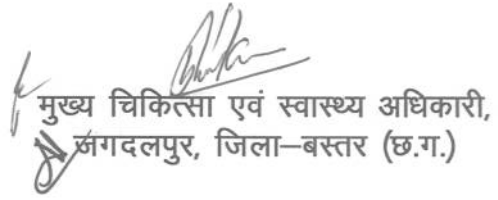 मुख्य चिकित्सा एवं स्वास्थ्य अधिकारी,
जगदलपुर, जिला–बस्तर (छ.ग.)